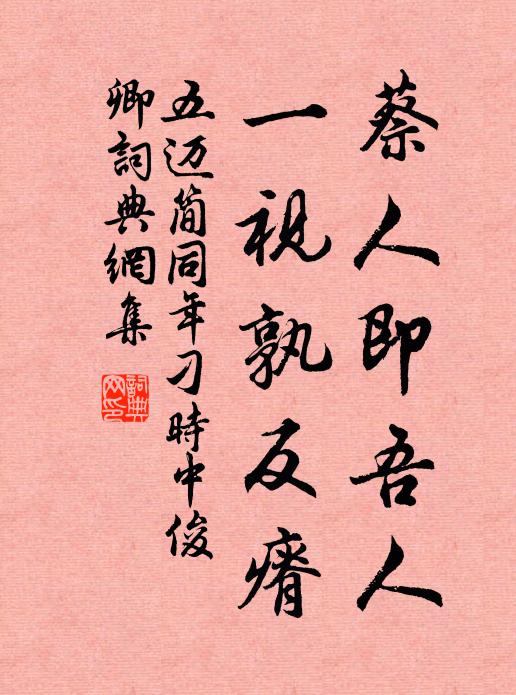 蔡人即吾人
一視孰反瘠
五迈简同年刁時中俊
卿詞典網集
詞典网印